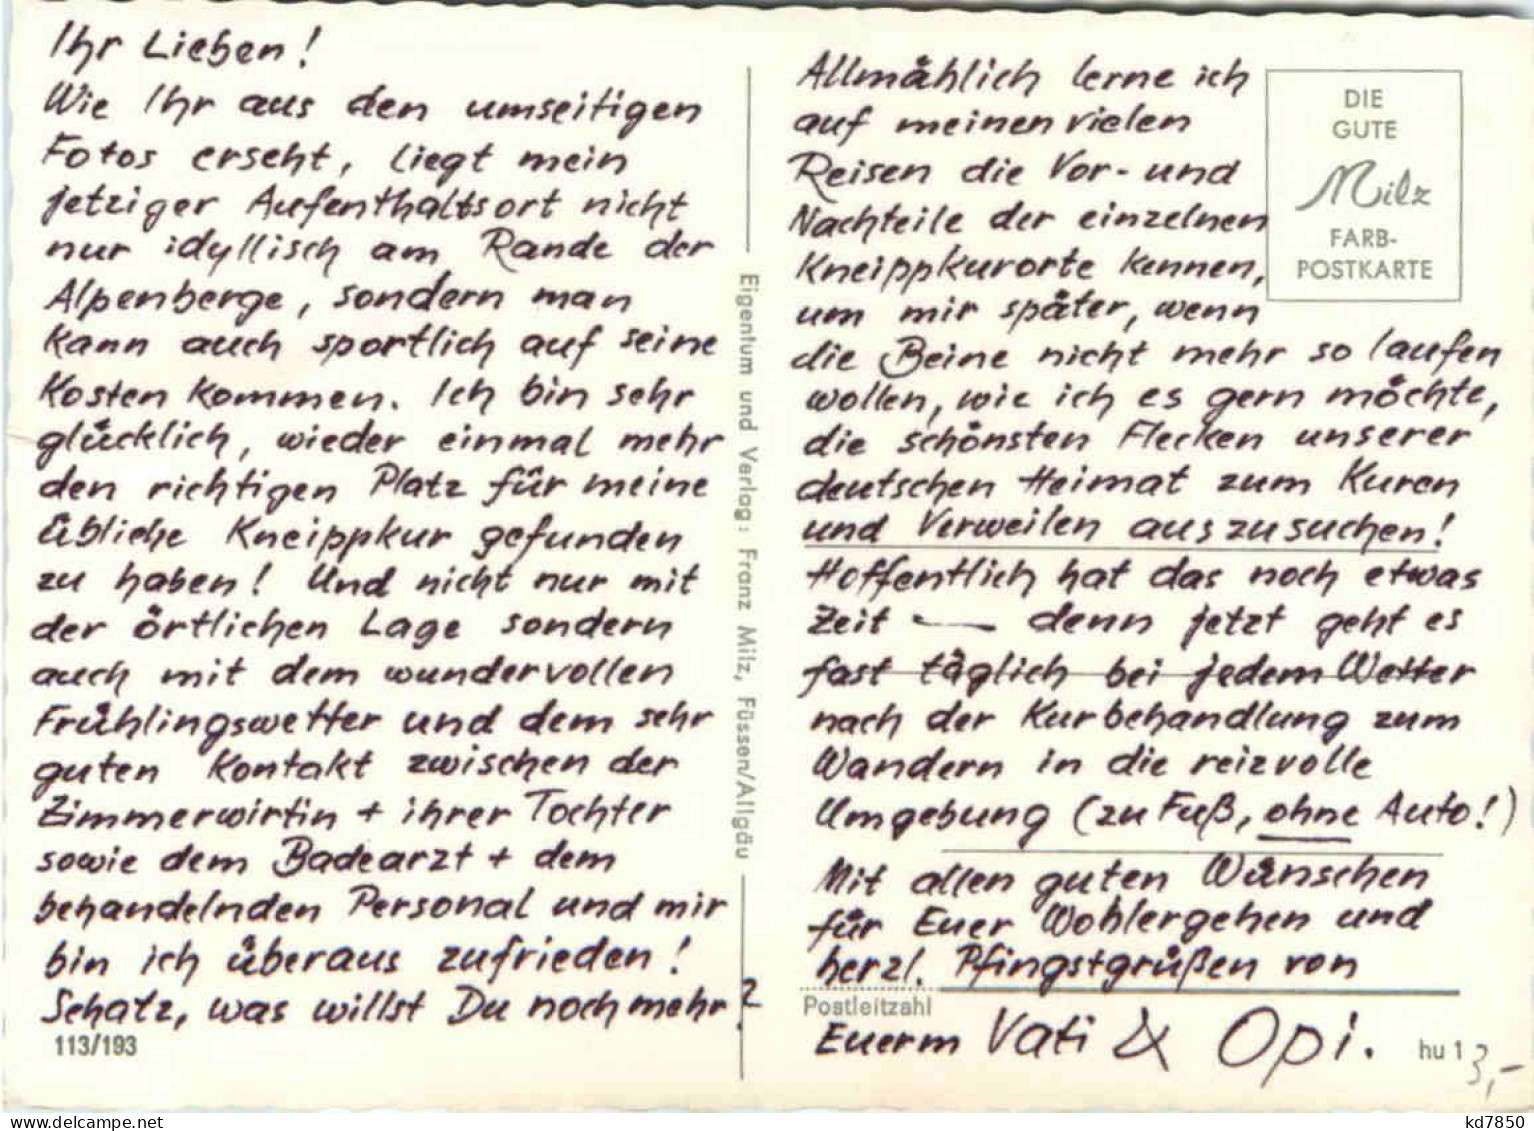 Ihr Lieben!
Wie Ihr aus den umseitigen
Fotos erseht, liegt mein
jetziger Aufenthaltsort nicht
nur idyllisch am Rande der
Alpenberge, sondern man
kann auch sportlich auf seine
Kosten kommen. Ich bin sehr
glücklich, wieder einmal mehr
den richtigen Platz für meine
übliche Kneippkur gefunden
zu haben! Und nicht nur mit
der örtlichen Lage sondern
auch mit dem wundervollen
Frühlingswetter und dem sehr
guten Kontakt zwischen der
Zimmerwirtin + ihrer Tochter
sowie dem Badearzt + dem
behandelnden Personal und mir
bin ich überaus zufrieden!
Schatz, was willst Du noch mehr?
113/193
Eigentum und Verlag: Franz Milz, Füssen/Allgäu
Allmählich lerne ich
auf meinen vielen
Reisen die Vor- und
Nachteile der einzelnen
Kneippkurorte kennen,
um mir später, wenn
die Beine nicht mehr so laufen
wollen, wie ich es gern möchte,
die schönsten Flecken unserer
deutschen Heimat zum Kuren
und Verweilen auszusuchen!
Hoffentlich hat das noch etwas
Zeit — denn jetzt geht es
fast täglich bei jedem Wetter
nach der Kurbehandlung zum
Wandern in die reizvolle
Umgebung (zu Fuß, ohne Auto!)
Mit allen guten Wünschen
für Euer Wohlergehen und
herzl. Pfingstgrüßen von
Postleitzahl
Euerm Vati & Opi.
DIE
GUTE
Milz
FARB-
POSTKARTE
hu 1
3,-
www.delcampe.net
kd7850